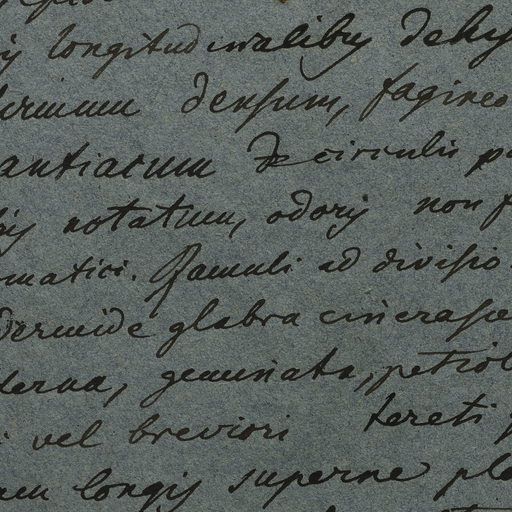 longitudinalibus dehys
densum, fagineo
antiacum circulis
notatum, odoris non f
matici. Ramuli ad divisio
dermide glabra cinerasce
terna, geminata, petiol
vel breviori tereti
longis superne pla